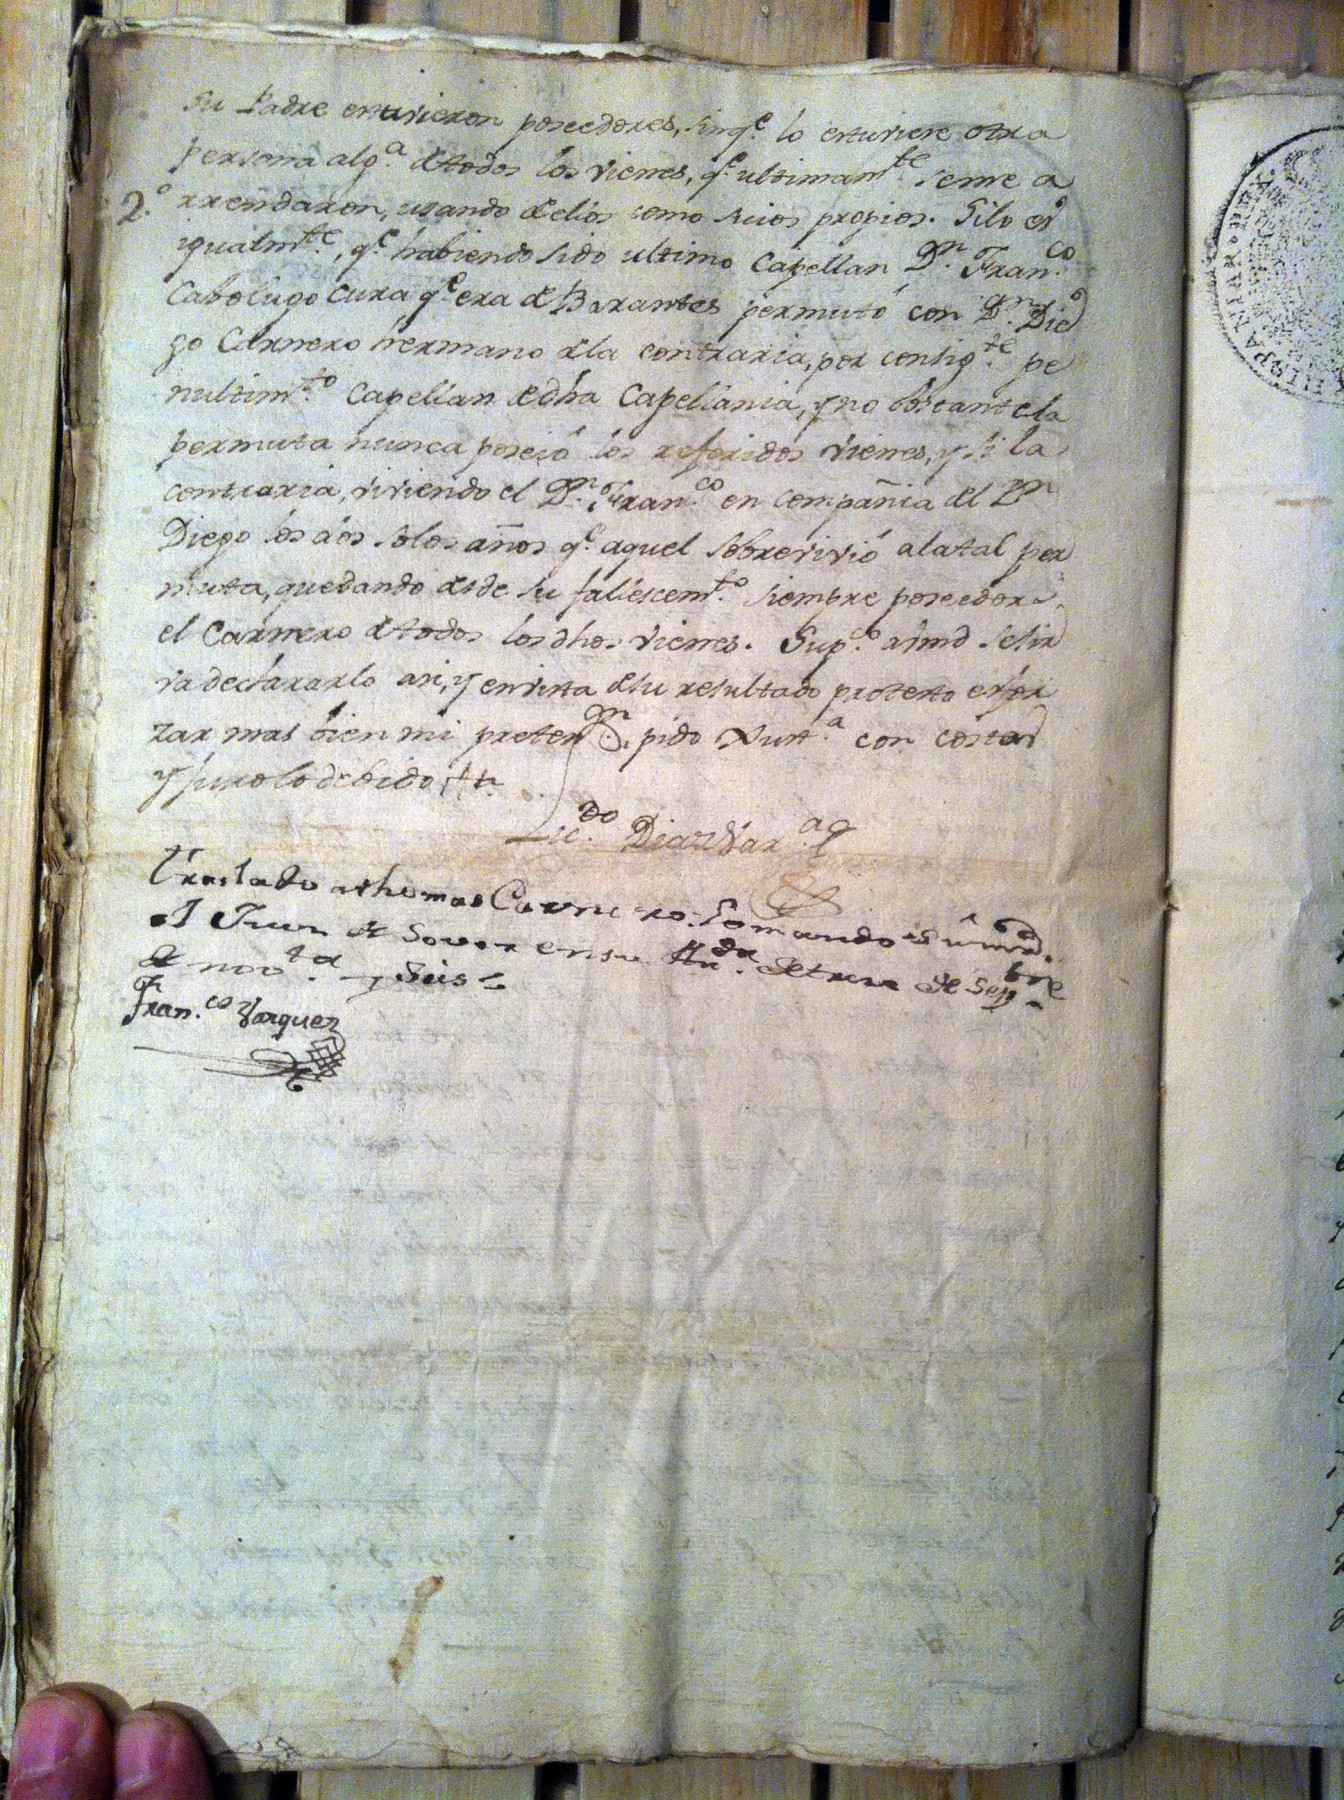 Su Padre estuvieron poseedores, sin q.e lo estuviese otra
persona alg.a de todos los vienes, q.e ultimam.te se me a
2.o rrendaron, usando de ellos como suios propios. Si lo es
igualm.te, q.e habiendo sido ultimo Capellan D.n Fran.co
Cabo Lugo Cura q.e era de Barantes permutó con D.n Die
go Carnero hermano de la contraria, por consig.te pe
nultim.to Capellan de dha Capellania, y no obstante la
permuta nunca poseió los referidos vienes, y si la
contraria, viviendo el D.n Fran.co en compañia del D.n
Diego los dos solos años q.e aquel sobrevivió a la tal per
muta, quedando desde su fallescem.to siempre poseedor
el Carnero de todos los dhos. vienes. Sup.co a vmd se sir
va declararlo asi, y en vista de su resultado protesto esfor
zar mas bien mi preten.on, pido Xust.a con costas
y juro lo debido &.a
Lic.do Diaz Var.a
Traslado a thomas Carnero. Lo mando Su mrd.
el Juez de Sover en su Au.da de trece de Sep.bre
de nov.ta y Seis
Fran.co Vazquez
HISPANIARUM REX